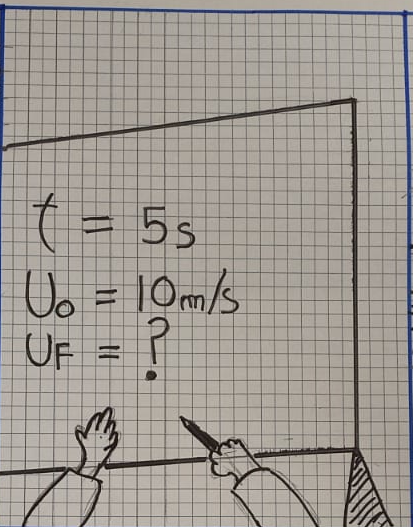 t = 5s
U₀ = 10m/s
UF = ?